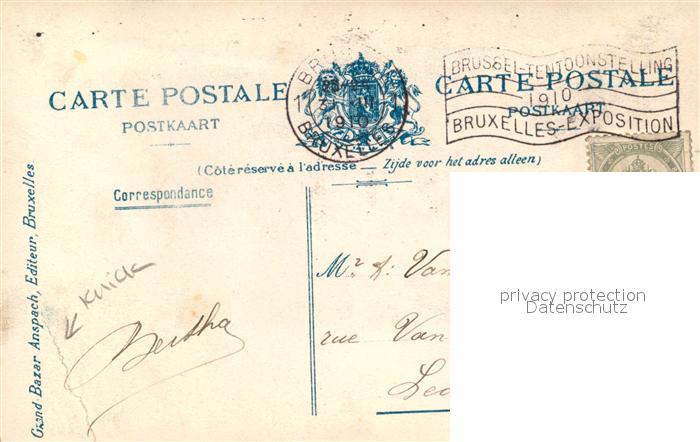 BRUSSEL-TENTOONSTELLING
1910
BRUXELLES-EXPOSITION
CARTE POSTALE
POSTKAART
CARTE POSTALE
POSTKAART
1910
BRUXELLES
POSTES
(Côté réservé à l'adresse — Zijde voor het adres alleen)
Correspondance
Grand Bazar Anspach, Editeur, Bruxelles
Knick
Bertha
Mr A: Van
rue Van
privacy protection
Datenschutz